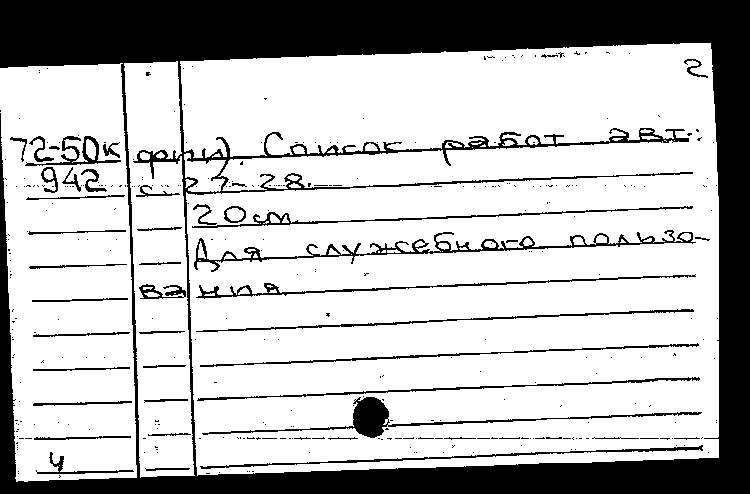 2
72-50к фии). Список работ авт.:
942 с. 27-28.
20см.
Для служебного пользо-
вания.
4